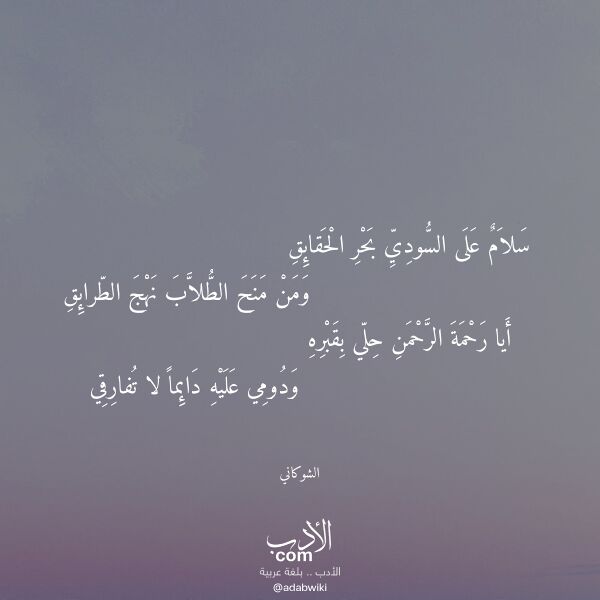 سَلاَمٌ عَلَى السُّودِيِّ بَحْرِ الْحَقَايِقِ
وَمَنْ مَنَحَ الطُّلاَّبَ نَهْجَ الطّرايِقِ
أَيا رَحْمَةَ الرَّحْمَنِ حِلّي بِقَبْرِهِ
وَدُومِي عَلَيْهِ دَايِماً لا تُفارِقِي
الشوكاني
الأدب
com
الأدب .. بلغة عربية
@adabwiki